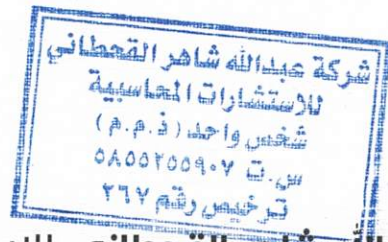 شركة عبدالله شاهر القحطاني
للاستشارات المحاسبية
شخص واحد ( ذ.م.م )
س.ت ٥٨٥٥٢٥٥٩٠٧
ترخيص رقم ٢٦٧